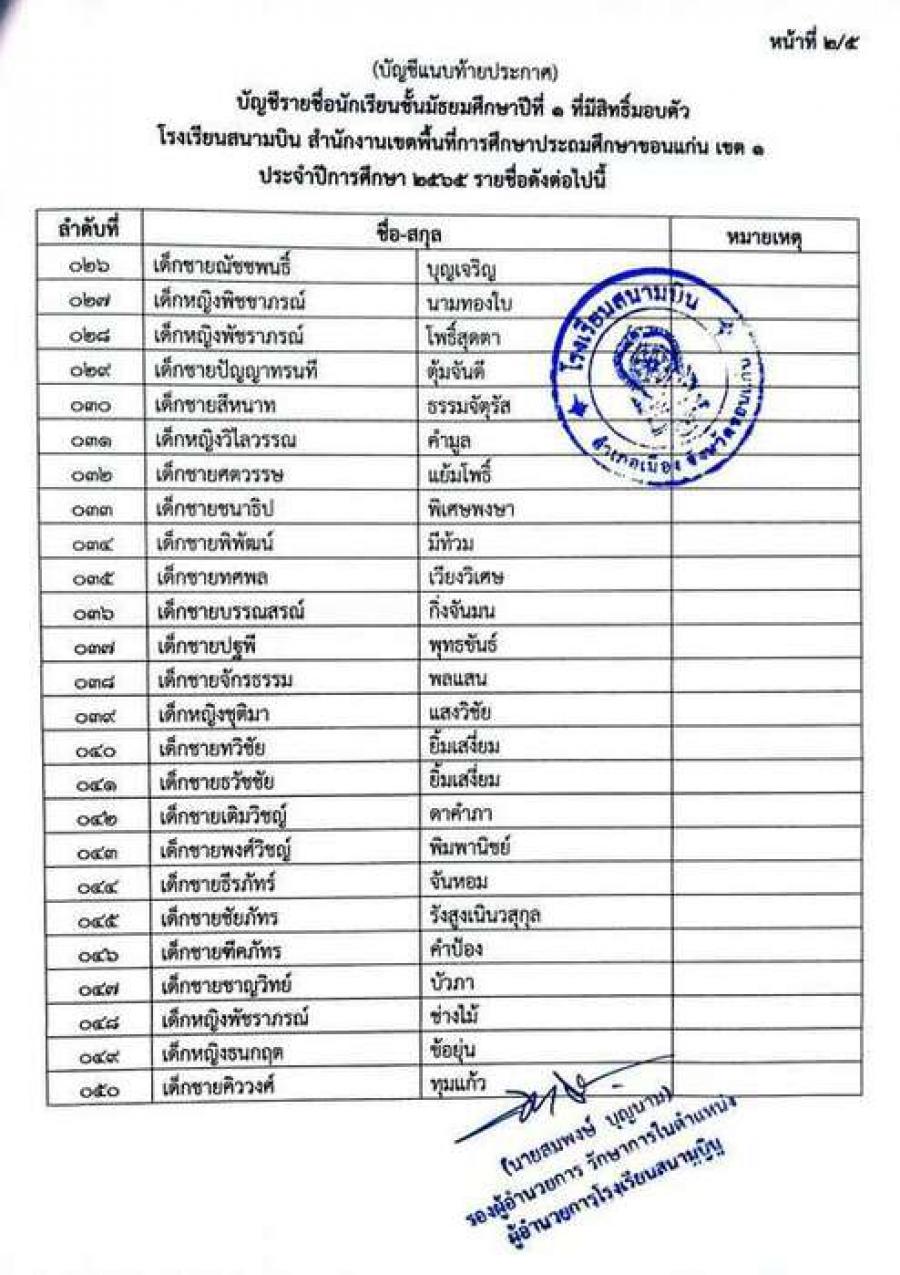 หน้าที่ ๒/๕
(บัญชีแนบท้ายประกาศ)
บัญชีรายชื่อนักเรียนชั้นมัธยมศึกษาปีที่ ๑ ที่มีสิทธิ์มอบตัว
โรงเรียนสนามบิน สำนักงานเขตพื้นที่การศึกษาประถมศึกษาขอนแก่น เขต ๑
ประจำปีการศึกษา ๒๕๖๕ รายชื่อดังต่อไปนี้
ลำดับที่ ชื่อ-สกุล หมายเหตุ
๐๒๖ เด็กชายณัชชพนธิ์ บุญเจริญ
๐๒๗ เด็กหญิงพิชชาภรณ์ นามทองใบ
๐๒๘ เด็กหญิงพัชราภรณ์ โพธิ์สุดตา
๐๒๙ เด็กชายปัญญาทรนที ตุ้มจันดี
๐๓๐ เด็กชายสีหนาท ธรรมจัตุรัส
๐๓๑ เด็กหญิงวิไลวรรณ คำมูล
๐๓๒ เด็กชายศตวรรษ แย้มโพธิ์
๐๓๓ เด็กชายชนาธิป พิเศษพงษา
๐๓๔ เด็กชายพิพัฒน์ มีท้วม
๐๓๕ เด็กชายทศพล เวียงวิเศษ
๐๓๖ เด็กชายบรรณสรณ์ กิ่งจันมน
๐๓๗ เด็กชายปฐพี พุทธขันธ์
๐๓๘ เด็กชายจักรธรรม พลแสน
๐๓๙ เด็กหญิงชุติมา แสงวิชัย
๐๔๐ เด็กชายทวิชัย ยิ้มเสงี่ยม
๐๔๑ เด็กชายธวัชชัย ยิ้มเสงี่ยม
๐๔๒ เด็กชายเติมวิชญ์ ดาคำภา
๐๔๓ เด็กชายพงศ์วิชญ์ พิมพานิชย์
๐๔๔ เด็กชายธีรภัทร์ จันหอม
๐๔๕ เด็กชายชัยภัทร รังสูงเนินวสุกุล
๐๔๖ เด็กชายฑีคภัทร คำป้อง
๐๔๗ เด็กชายชาญวิทย์ บัวภา
๐๔๘ เด็กหญิงพัชราภรณ์ ช่างไม้
๐๔๙ เด็กหญิงธนกฤต ข้อยุ่น
๐๕๐ เด็กชายคิววงศ์ ทุมแก้ว
โรงเรียนสนามบิน
อำเภอเมือง จังหวัดขอนแก่น
(นายสมพงษ์ บุญบาน)
รองผู้อำนวยการ รักษาการในตำแหน่ง
ผู้อำนวยการโรงเรียนสนามบิน